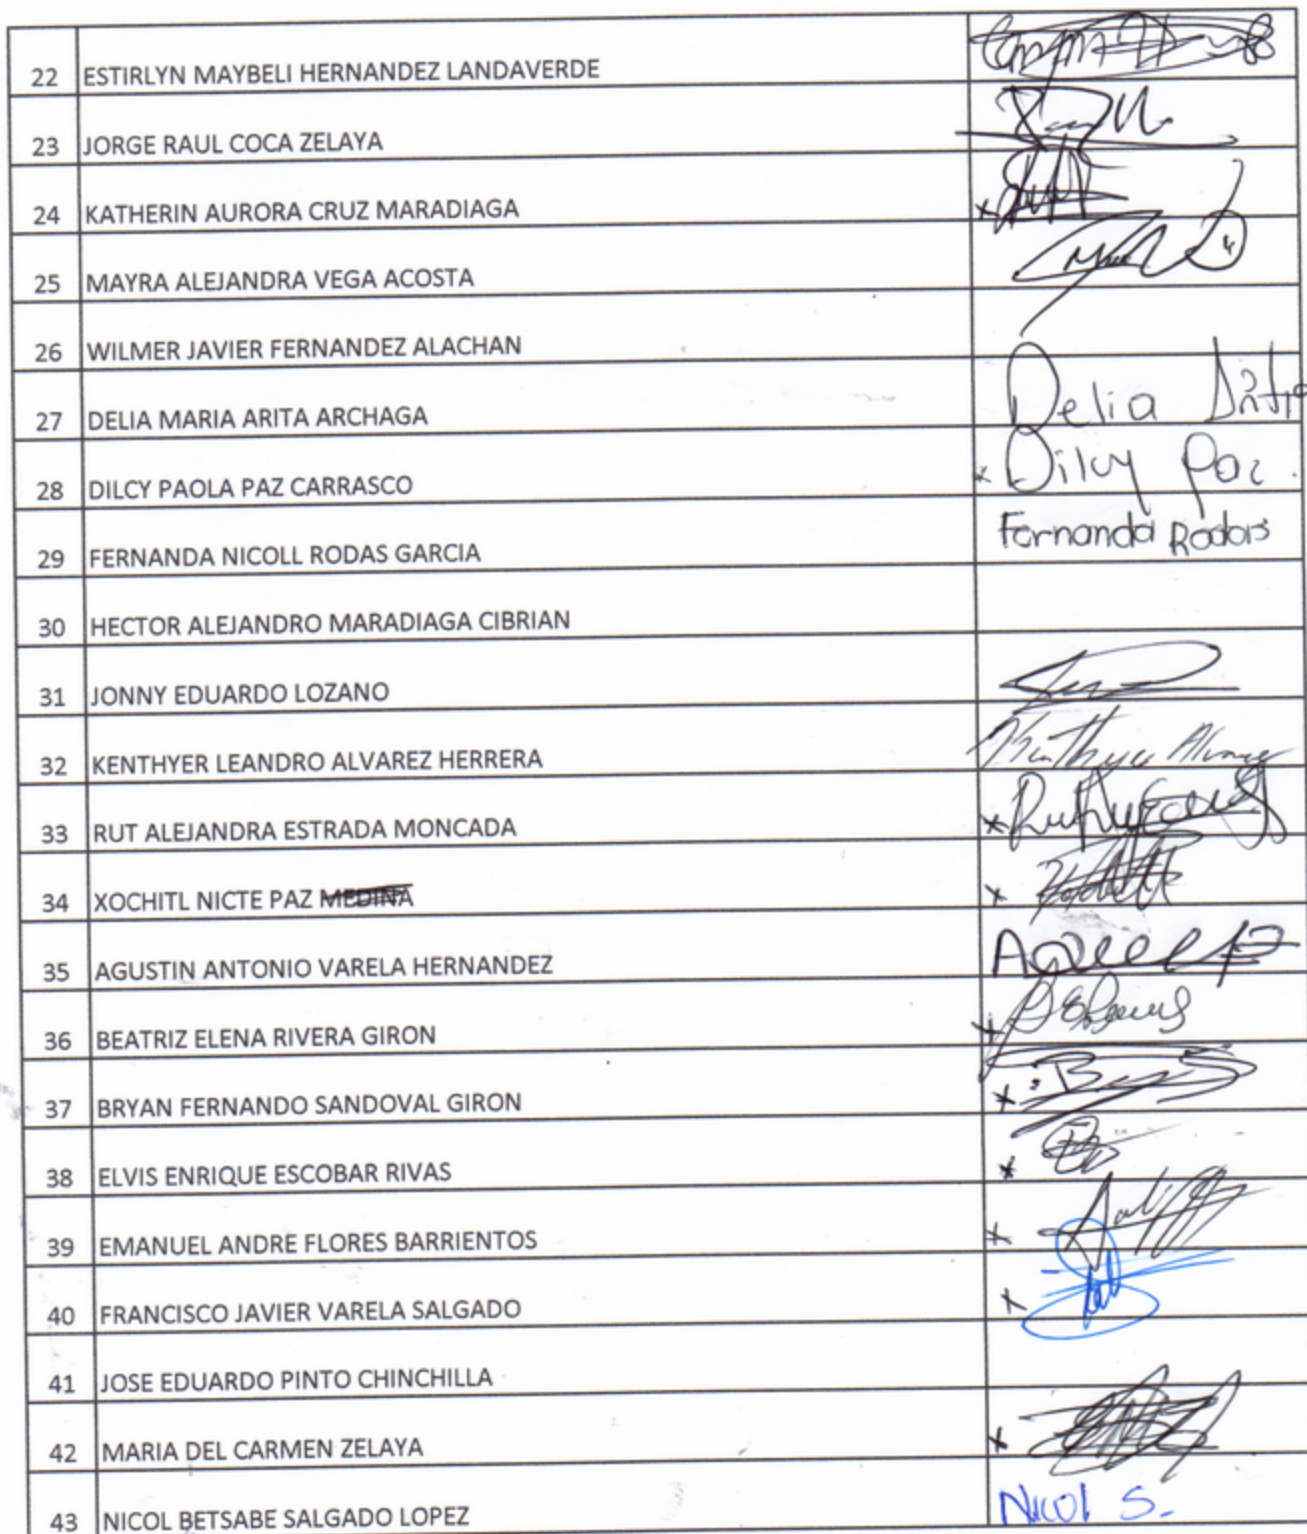 22 ESTIRLYN MAYBELI HERNANDEZ LANDAVERDE
23 JORGE RAUL COCA ZELAYA
24 KATHERIN AURORA CRUZ MARADIAGA x
25 MAYRA ALEJANDRA VEGA ACOSTA
26 WILMER JAVIER FERNANDEZ ALACHAN
27 DELIA MARIA ARITA ARCHAGA Delia Arita
28 DILCY PAOLA PAZ CARRASCO x Dilcy Paz.
29 FERNANDA NICOLL RODAS GARCIA Fernanda Rodas
30 HECTOR ALEJANDRO MARADIAGA CIBRIAN
31 JONNY EDUARDO LOZANO
32 KENTHYER LEANDRO ALVAREZ HERRERA
33 RUT ALEJANDRA ESTRADA MONCADA x
34 XOCHITL NICTE PAZ MEDINA x
35 AGUSTIN ANTONIO VARELA HERNANDEZ
36 BEATRIZ ELENA RIVERA GIRON x
37 BRYAN FERNANDO SANDOVAL GIRON x
38 ELVIS ENRIQUE ESCOBAR RIVAS x
39 EMANUEL ANDRE FLORES BARRIENTOS x
40 FRANCISCO JAVIER VARELA SALGADO x
41 JOSE EDUARDO PINTO CHINCHILLA
42 MARIA DEL CARMEN ZELAYA x
43 NICOL BETSABE SALGADO LOPEZ Nicol S.